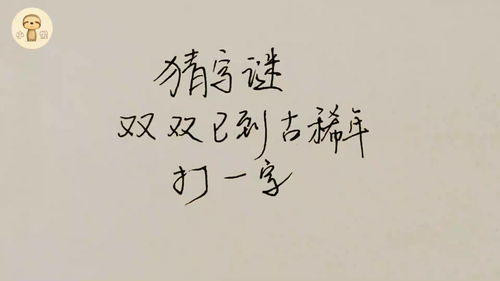 猜字谜
双双已到古稀年
打一字